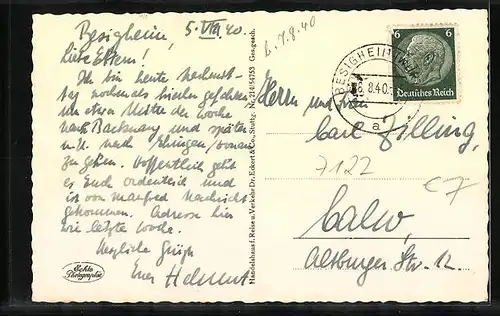 Besigheim, 5. VIII. 40.
Liebe Eltern!
Ich bin heute Nachmit-
tag nochmals hierher gefahren
um etwa Mitte der Woche
nach Backnang und später
evtl. nach Ehingen/Donau
zu gehen. Hoffentlich geht
es Euch ordentlich und
ist von Manfred Nachricht
gekommen. Adresse hier
wie letzte Woche.
Herzliche Grüße
Euer Helmut
Echte
Photographie
Handelshaus f. Reise u. Verkehr Dr. Eckert & Co. Stuttg.
Ges. gesch.
b. 7.8.40
6 6
Deutsches Reich
BESIGHEIM
6.8.40.
a
Herrn und Frau
Carl Zilling,
7122
€7
Calw,
Altburger Str. 12